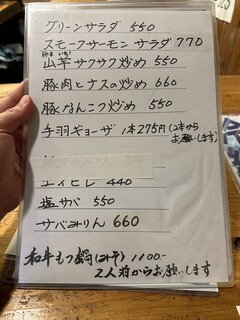 グリーンサラダ 550
スモークサーモン サラダ 770
山芋サクサク炒め 550
豚肉とナスの炒め 660
豚なんこつ炒め 550
手羽ギョーザ 1本275円(2本から
お願いします)
エイヒレ 440
塩サバ 550
サバみりん 660
和牛もつ鍋(みそ) 1100.-
2人前からお願いします